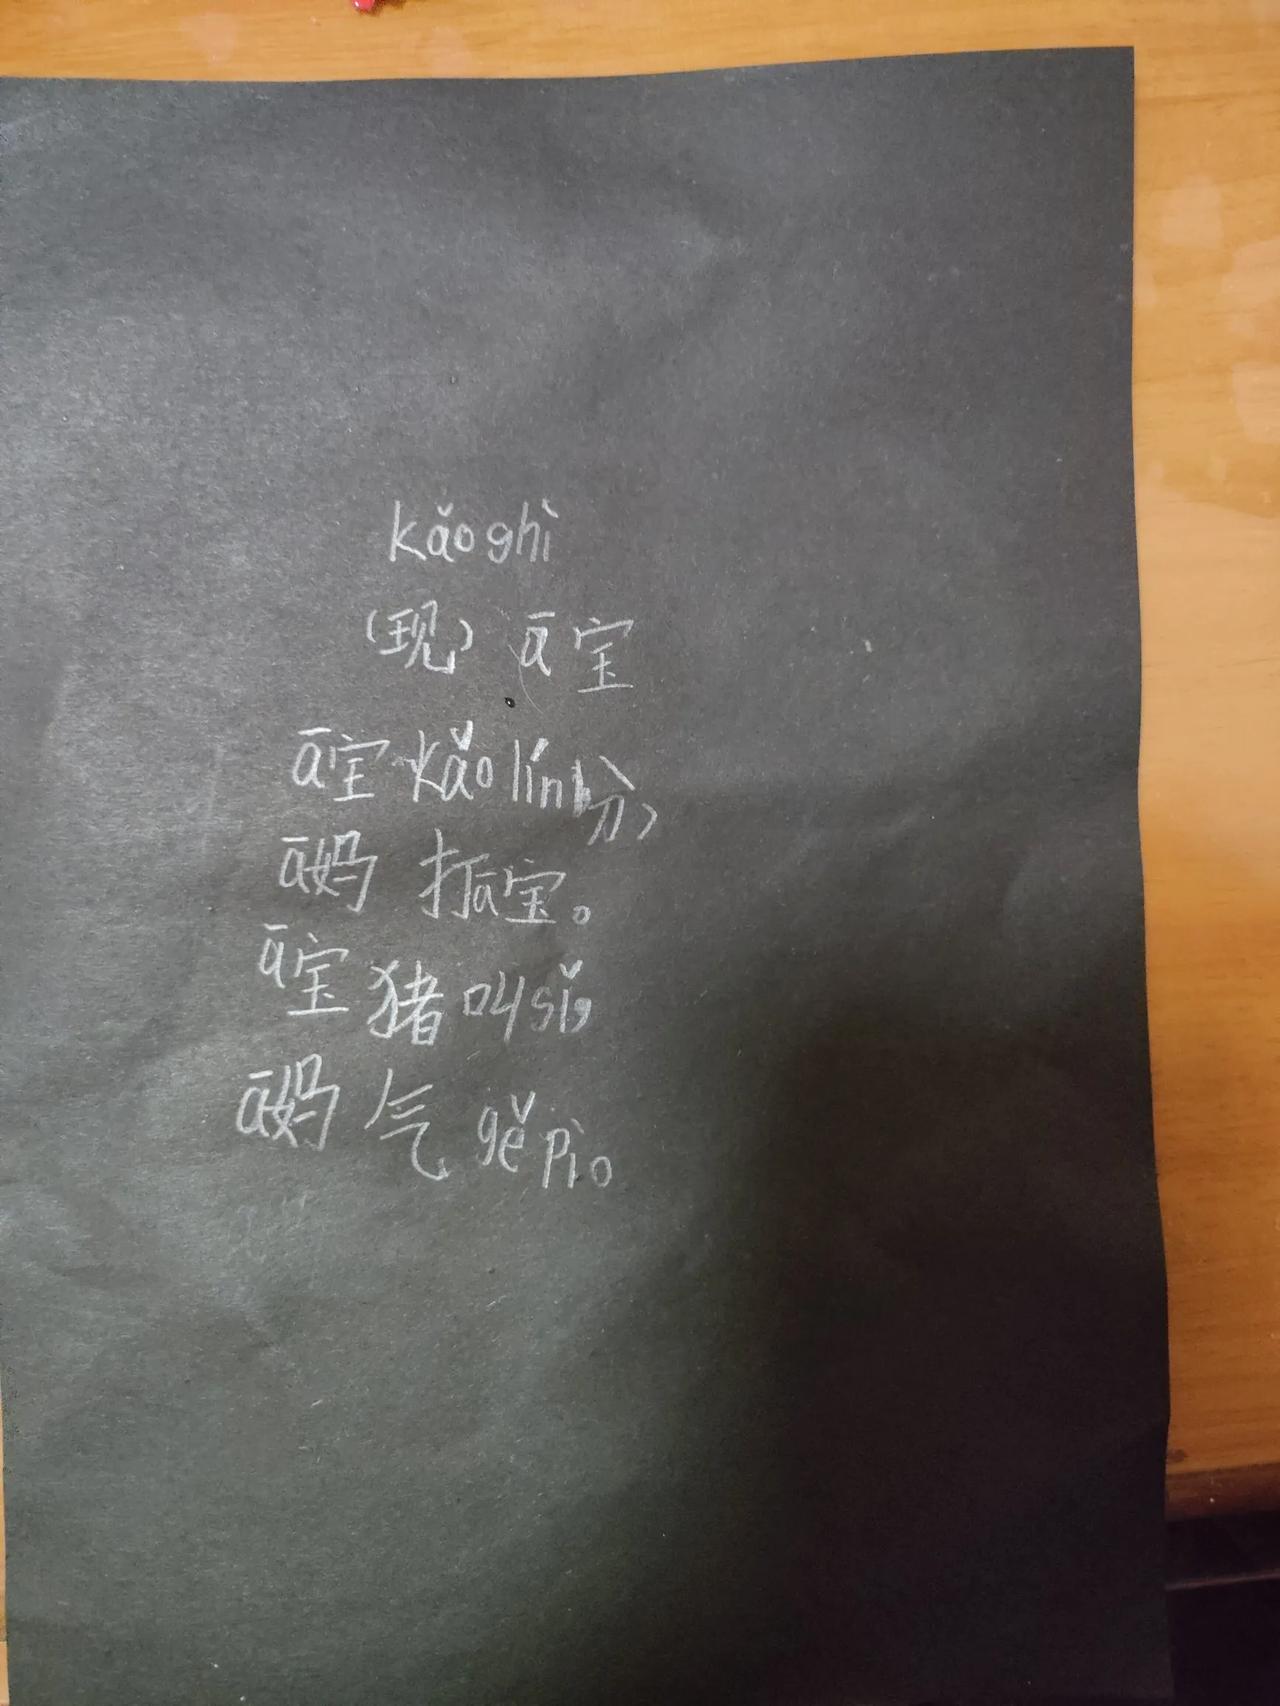 kǎoghì
（现）ā宝
ā宝kǎolín分，
ā妈打ā宝。
ā宝猪叫sǐ，
ā妈气gěpì。